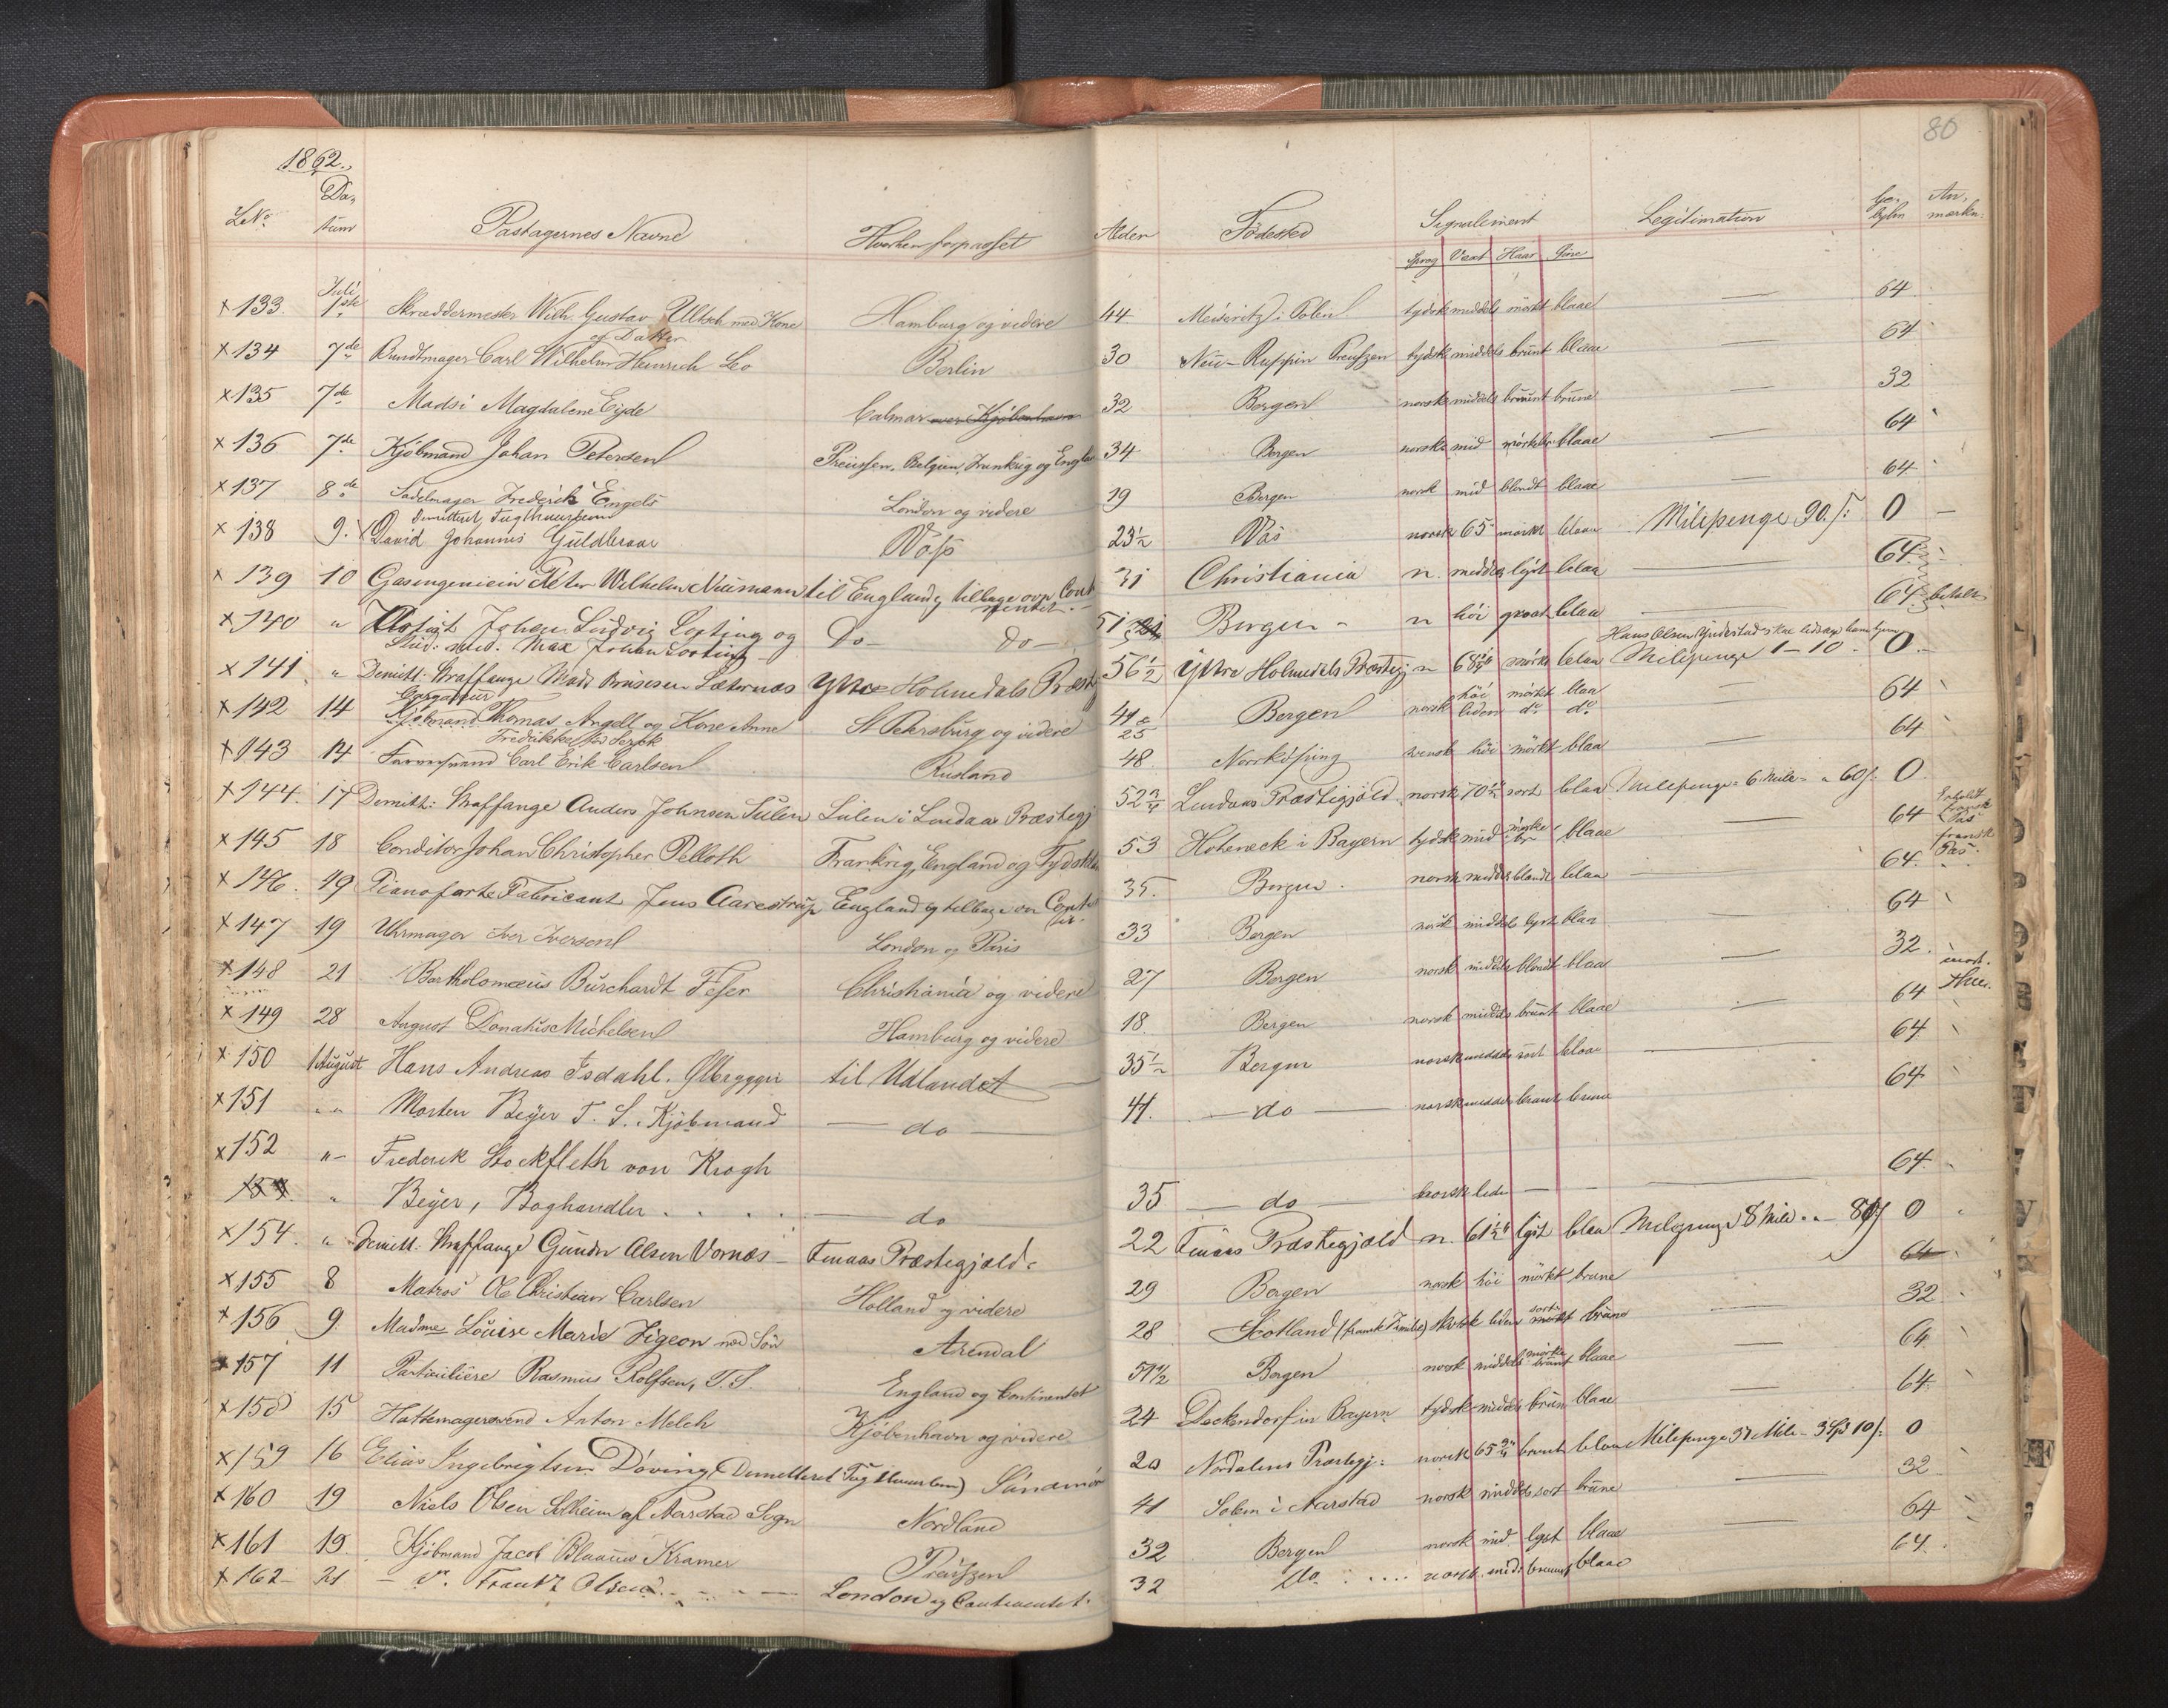 80
1862.
LNo. Datum Pastagernes Navne Hvorhen forpasset Alder Fødested Signalement Legitimation Gebyhr Anmærkn.
Sprog Vext Haar Øine
Juli
× 133. 1ste Skræddermester Wilh. Gustav Ultsch med Kone Hamburg og videre 44. Meiseritz i Polen tydsk middels mørkt blaae — 64
og Datter
× 134 7de Bundtmager Carl Wilhelm Heinrich Leo Berlin 30 Neu-Ruppin Preuszen tydsk middels brunt blaae — 64
× 135 7de Madsl Magdalene Eyde Calmar over Kjøbenhavn 32 Bergen norsk middels brunt brune — 32
× 136 7de Kjöbmand Johan Petersen Preussen, Belgien Frankrig og Engla 34 Bergen norsk mid mörkebr blaae — 64
× 137 8de Sadelmager Frederik Engels London og videre 19 Bergen norsk mid blondt blaae — 64
Demitteret Tugthuuslem
× 138 9. David Johannes Guldbraar Voss 23½ Vos norsk 65" mörkt blaa Milepenge 90 s: 0 —
× 139 10 Gasingeniein Peter Wilhelm Neumann til England og tilbage over Conti 31 Christiania n. middels lyst blaa — 64
nentet.
× 140 " Johan Ludvig Lorting og Do — Do — 51 Bergen - n höi graat blaa — 64 betalt
Stud. med. Max Johan Lorting
Hans Olsen skal ledsage ham hjem
× 141. " Demitt: Straffange Mads Brusesen Sæternæs Yttre Holmedals Præstegj 56½ Yttre Holmedals Præstegj n 68 mörkt blaa Milepenge 1 – 10 - 0.
× 142 14 Kjöbmand Thomas Angell og Kone Anne St Petersburg og videre 41 & 25 Bergen norsk höi liden mörkt do blaa do — 64
Fredrikke
× 143 14 Carl Erik Carlsen Rusland 48. Norrköping svensk höi mörkt blaa — 64
× 144. 17 Demitt: Straffange Anders Johnsen Sülen Sülen i Lindaas Præstegj 52¾ Lindaas Præstegjæld norsk 70 sort blaa Milepenge 6 Mile - " 60 s. 0.
× 145 18 Conditor Johan Christopher Pelloth Frankrig, England og Tydskl 53 Hoheneck i Bayern tydsk mid mörke br blaae — 64 fransk Pas
× 146. 19 Pianoforte Fabricant Jens Aarestrup England og tilbage over Conti 35. Bergen. norsk middels blondt blaa — 64. fransk Pas.
× 147 19 Uhrmager Iver Iversen London og Paris 33 Bergen norsk middels lyst blaa 64
× 148 21 Bartholomæus Burchardt Feser Christiania og videre 27 Bergen norsk middels blondt blaa — 32.
× 149 28 August Donatus Michelsen Hamburg og videre 18. Bergen norsk middels brunt blaae — 64
× 150 1 August Hans Andreas Isdahl. Ølbrygger til Udlandet 35½ Bergen norsk middels sort blaae — 64
× 151 " " Morten Beyer T. S. Kjöbmand — do — 41. — do — norsk middels brunt brune 64
× 152 " — Frederik Stockfleth von Krogh
153 " Beyer, Boghandler . . . . — do 35 — do — norsk liden — — 64.
× 154. " Demitt. Straffange Gunder Olsen Vornæs - Finaas Præstegjæld. 22 Finaas Præstegjæld n. 61½" lyst blaa Milepenge 8 Mile . - 80 s 0
× 155 8 Matros Ole Christian Carlsen Holland og videre 29 Bergen norsk höi mörkt brune 64
× 156 9. Madme Louise Marie Figeon med Sön Arendal 28 Scotland (fransk Familie) skotsk liden sort mörkt brune — 32
× 157 11 Particuliere Rasmus Rolfsen, T. S. England og Continentet 51½ Bergen norsk middels mörke brunt blaae — 64
× 158 15 Hattemagersvend Anton Melch Kjöbenhavn og videre 24 Deckendorf in Bayern tydsk middels brun blaae — 64.
× 159 16 Elias Ingebrigtsen Döving (Demitteret Tugthuuslem) Söndmör 20 Nordalens Præstegj: norsk 65¾ brunt blaa Milepenge 37 Mile - 3 Sp 10 s: 0
× 160 19 Niels Olsen Solheim af Aarstad Sogn Nordland 41 Solem i Aarstad norsk middels sort brune — 32
× 161 19 Kjöbmand Jacob Blaauw Kramer Preuszen 32 Bergen norsk mid. lyst blaae — 64
× 162 21 — do. Frantz Olsen . - - — London og Continentet. 32 Do. . . . . norsk mid. brunt blaae 64.